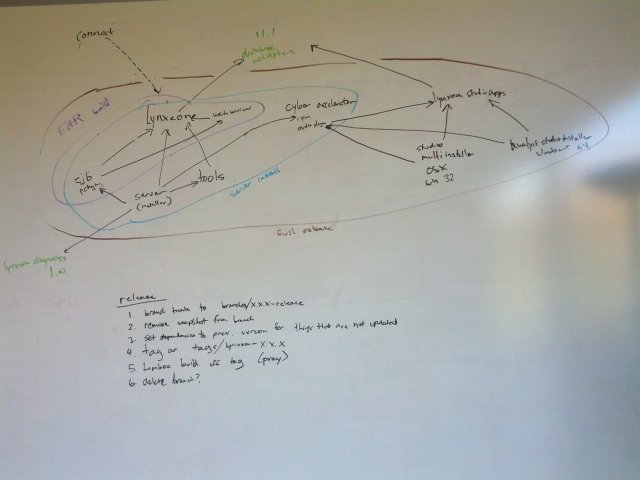 Connect
1.1.1
database
adapters
lynxeon studio apps
E2HR build
Lynxeon
webservices
cyber accelerator
rpm
studio
multi installer
OSX
win 32
Analyst studio installer
Windows 64
server
(installer)
tools
server install
full release
lynxeon diagnostics
1.0
release
1. branch trunk to branches/x.x.x-release
2. remove snapshot from branch
3. set dependencies to prev. version for things that are not updated
4. tag as tags/lynxeon-x.x.x
5. bamboo build off tag (pray)
6. delete branch?